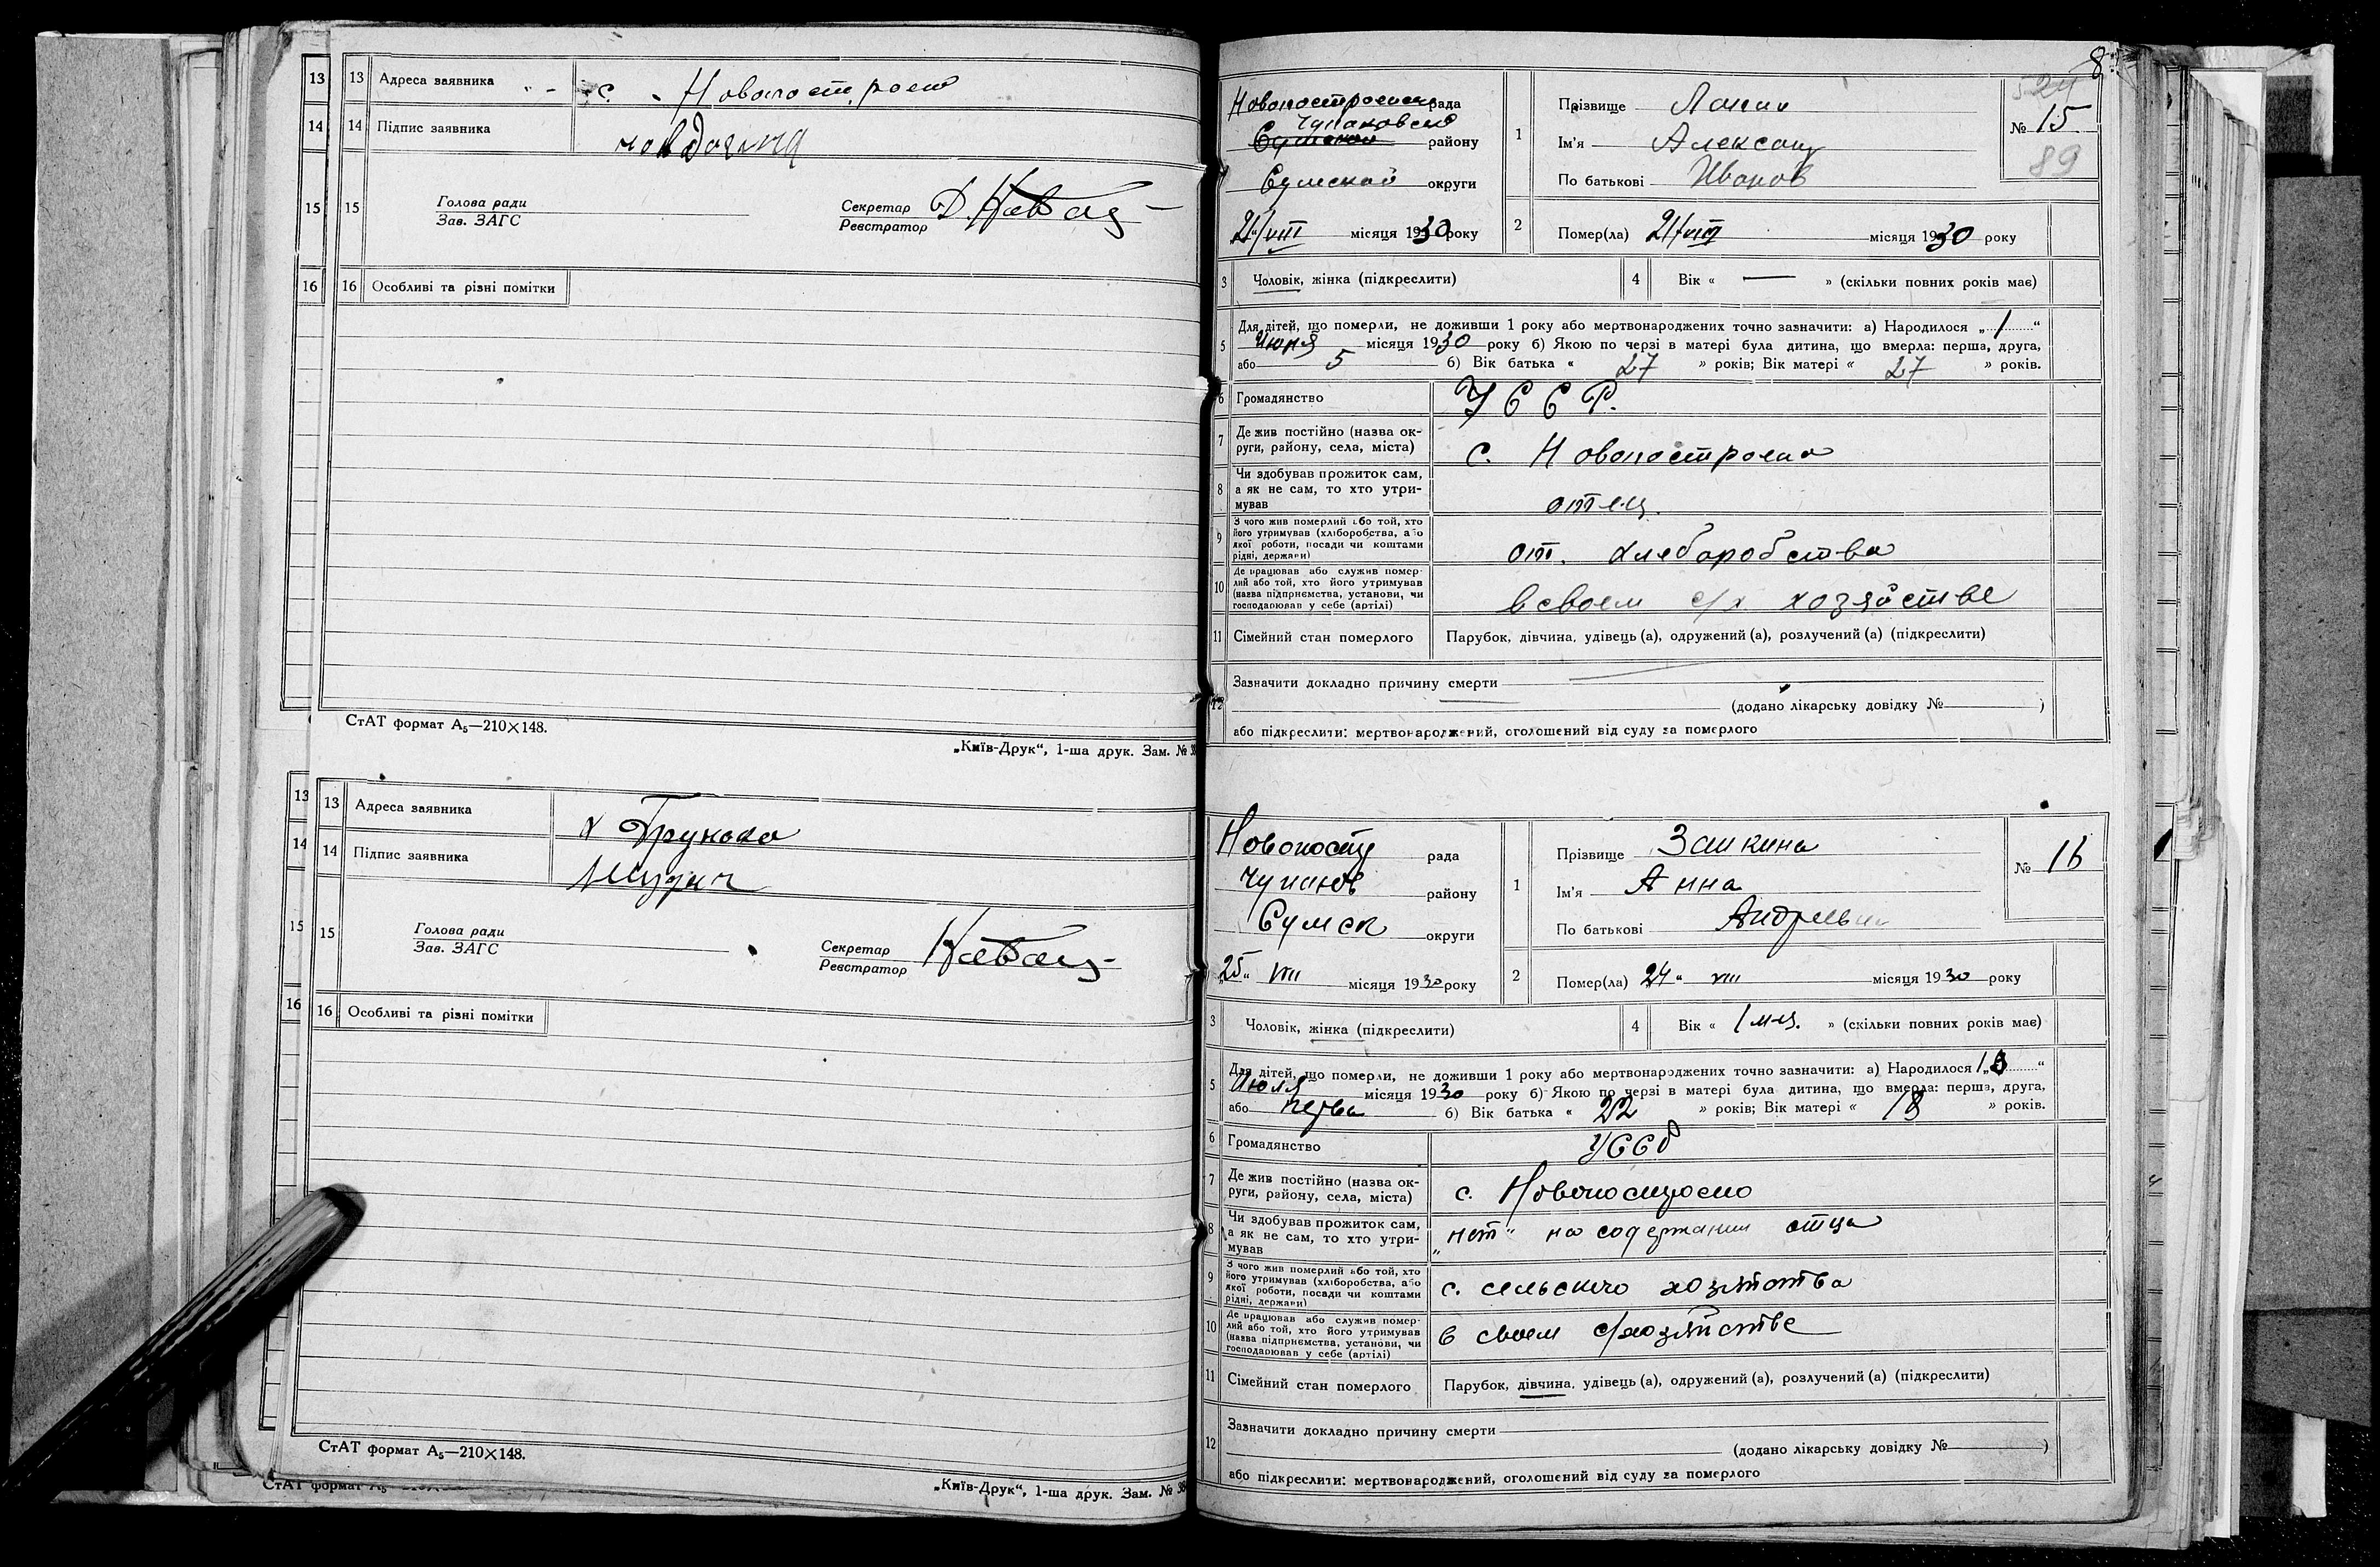 13 13 Адреса заявника с. Новопостроен
14 14 Підпис заявника
15 15 Голова ради
Зав. ЗАГС
Секретар
Реєстратор
16 16 Особливі та різні помітки
СтАТ формат А5—210×148.
„Київ-Друк“, 1-ша друк. Зам. №
13 13 Адреса заявника
14 14 Підпис заявника
15 15 Голова ради
Зав. ЗАГС
Секретар
Реєстратор
16 16 Особливі та різні помітки
СтАТ формат А5—210×148.
СтАТ формат А5
„Київ-Друк“, 1-ша друк. Зам. №
8
рада
району
Сумской округи
21/VIII місяця 1930 року
1 Прізвище
Ім'я Александ
По батькові Иванов
№ 15
89
2 Помер(ла) 21/VIII місяця 1930 року
3 Чоловік, жінка (підкреслити)
4 Вік « — » (скільки повних років має)
5 Для дітей, що померли, не доживши 1 року або мертвонароджених точно зазначити: а) Народилося „ 1 “
Июня місяця 1930 року б) Якою по черзі в матері була дитина, що вмерла: перша, друга,
або 5 б) Вік батька « 27 » років; Вік матері « 27 » років.
6 Громадянство УССР.
7 Де жив постійно (назва ок-
руги, району, села, міста) с. Новопостроено
8 Чи здобував прожиток сам,
а як не сам, то хто утри-
мував отец.
9 З чого жив померлий або той, хто
його утримував (хліборобства, або
якої роботи, посади чи коштами
рідні, держави) от. хлеборобства
10 Де працював або служив помер-
лий або той, хто його утримував
(назва підприємства, установи, чи
господарював у себе (артілі) в своем с/х хозяйстве
11 Сімейний стан померлого Парубок, дівчина, удівець (а), одружений (а), розлучений (а) (підкреслити)
12 Зазначити докладно причину смерти
(додано лікарську довідку № )
або підкреслити: мертвонароджений, оголошений від суду за померлого
Новопостр рада
Чупахов району
Сумск округи
25 " VIII місяця 1930 року
1 Прізвище Заикина
Ім'я Анна
По батькові
№ 16
2 Помер(ла) 24 " VIII місяця 1930 року
3 Чоловік, жінка (підкреслити)
4 Вік « 1 мц. » (скільки повних років має)
5 Для дітей, що померли, не доживши 1 року або мертвонароджених точно зазначити: а) Народилося
Июля місяця 1930 року б) Якою по черзі в матері була дитина, що вмерла: перша, друга,
або перва б) Вік батька « 22 » років; Вік матері « 18 » років.
6 Громадянство
7 Де жив постійно (назва ок-
руги, району, села, міста) с. Новопостроено
8 Чи здобував прожиток сам,
а як не сам, то хто утри-
мував „нет“ на содержании отца
9 З чого жив померлий або той, хто
його утримував (хліборобства, або
якої роботи, посади чи коштами
рідні, держави) с. сельского хозяйства
10 Де працював або служив помер-
лий або той, хто його утримував
(назва підприємства, установи, чи
господарював у себе (артілі) в своем с/хозяйстве
11 Сімейний стан померлого Парубок, дівчина, удівець (а), одружений (а), розлучений (а) (підкреслити)
12 Зазначити докладно причину смерти
(додано лікарську довідку № )
або підкреслити: мертвонароджений, оголошений від суду за померлого